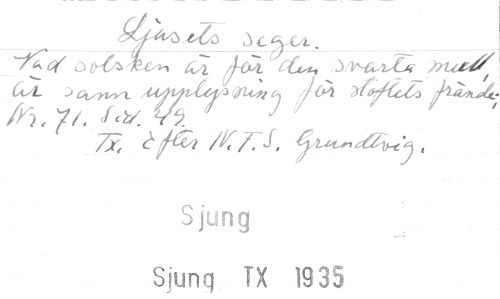 Ljusets seger.
Vad solsken är för den svarta mull,
är sann upplysning för stoftets frände;
Nr. 71. Sid. 49.
Tx. Efter N.F.S. Grundtvig.
Sjung
Sjung TX 1935